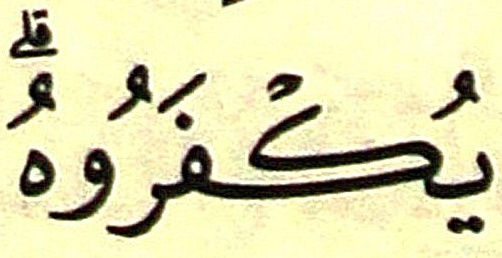 يُكْفَرُوهُ ۗ